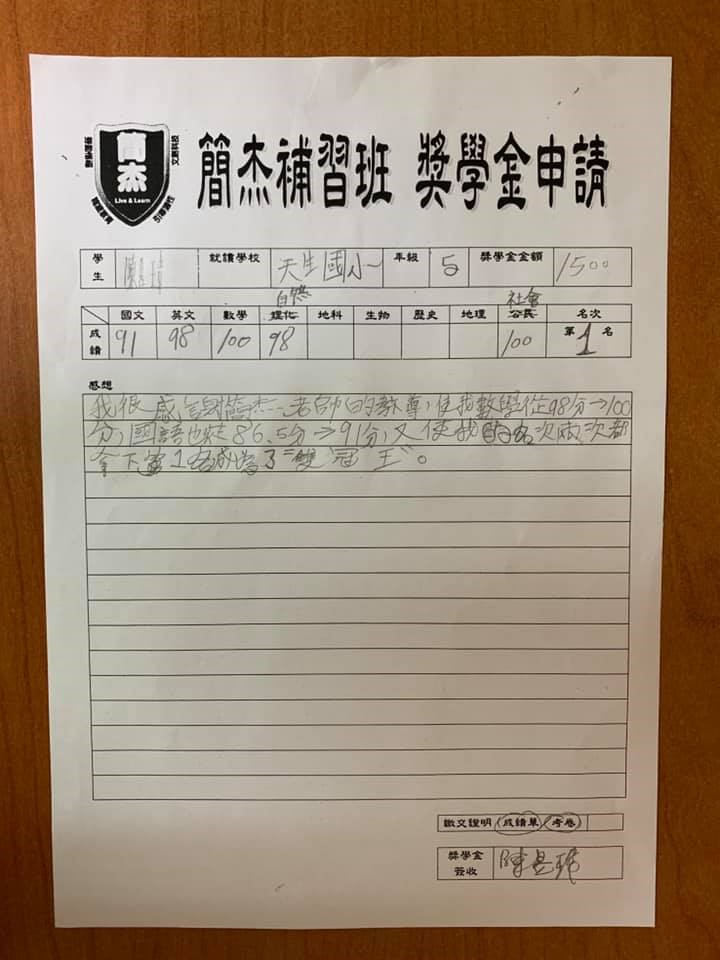 簡杰
Live & Learn
簡杰補習班 獎學金申請
學生 陳 就讀學校 天生國小 年級 5 獎學金金額 1500
自然 社會
國文 英文 數學 理化 地科 生物 歷史 地理 公民 名次
成績 91 98 100 98 100 第1名
感想
我很感謝簡杰老師的教導,使我數學從98分→100
分,國語也從86.5分→91分,又使我的名次兩次都
拿下第1名成為了"雙冠王"。
繳交證明 成績單 考卷
獎學金簽收 陳